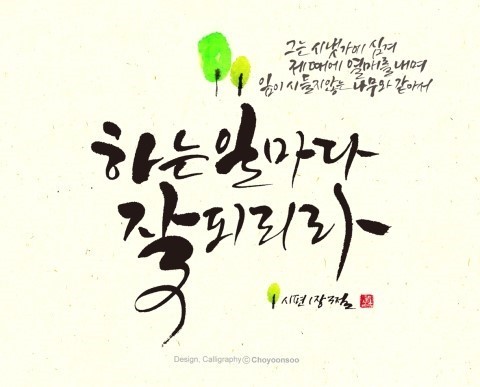 그는 시냇가에 심겨
제 때에 열매를 내며
잎이 시들지 않는 나무와 같아서
하는 일마다
잘 되리라
시편 1장 3절
Design, Calligraphy ⓒ Choyoonsoo